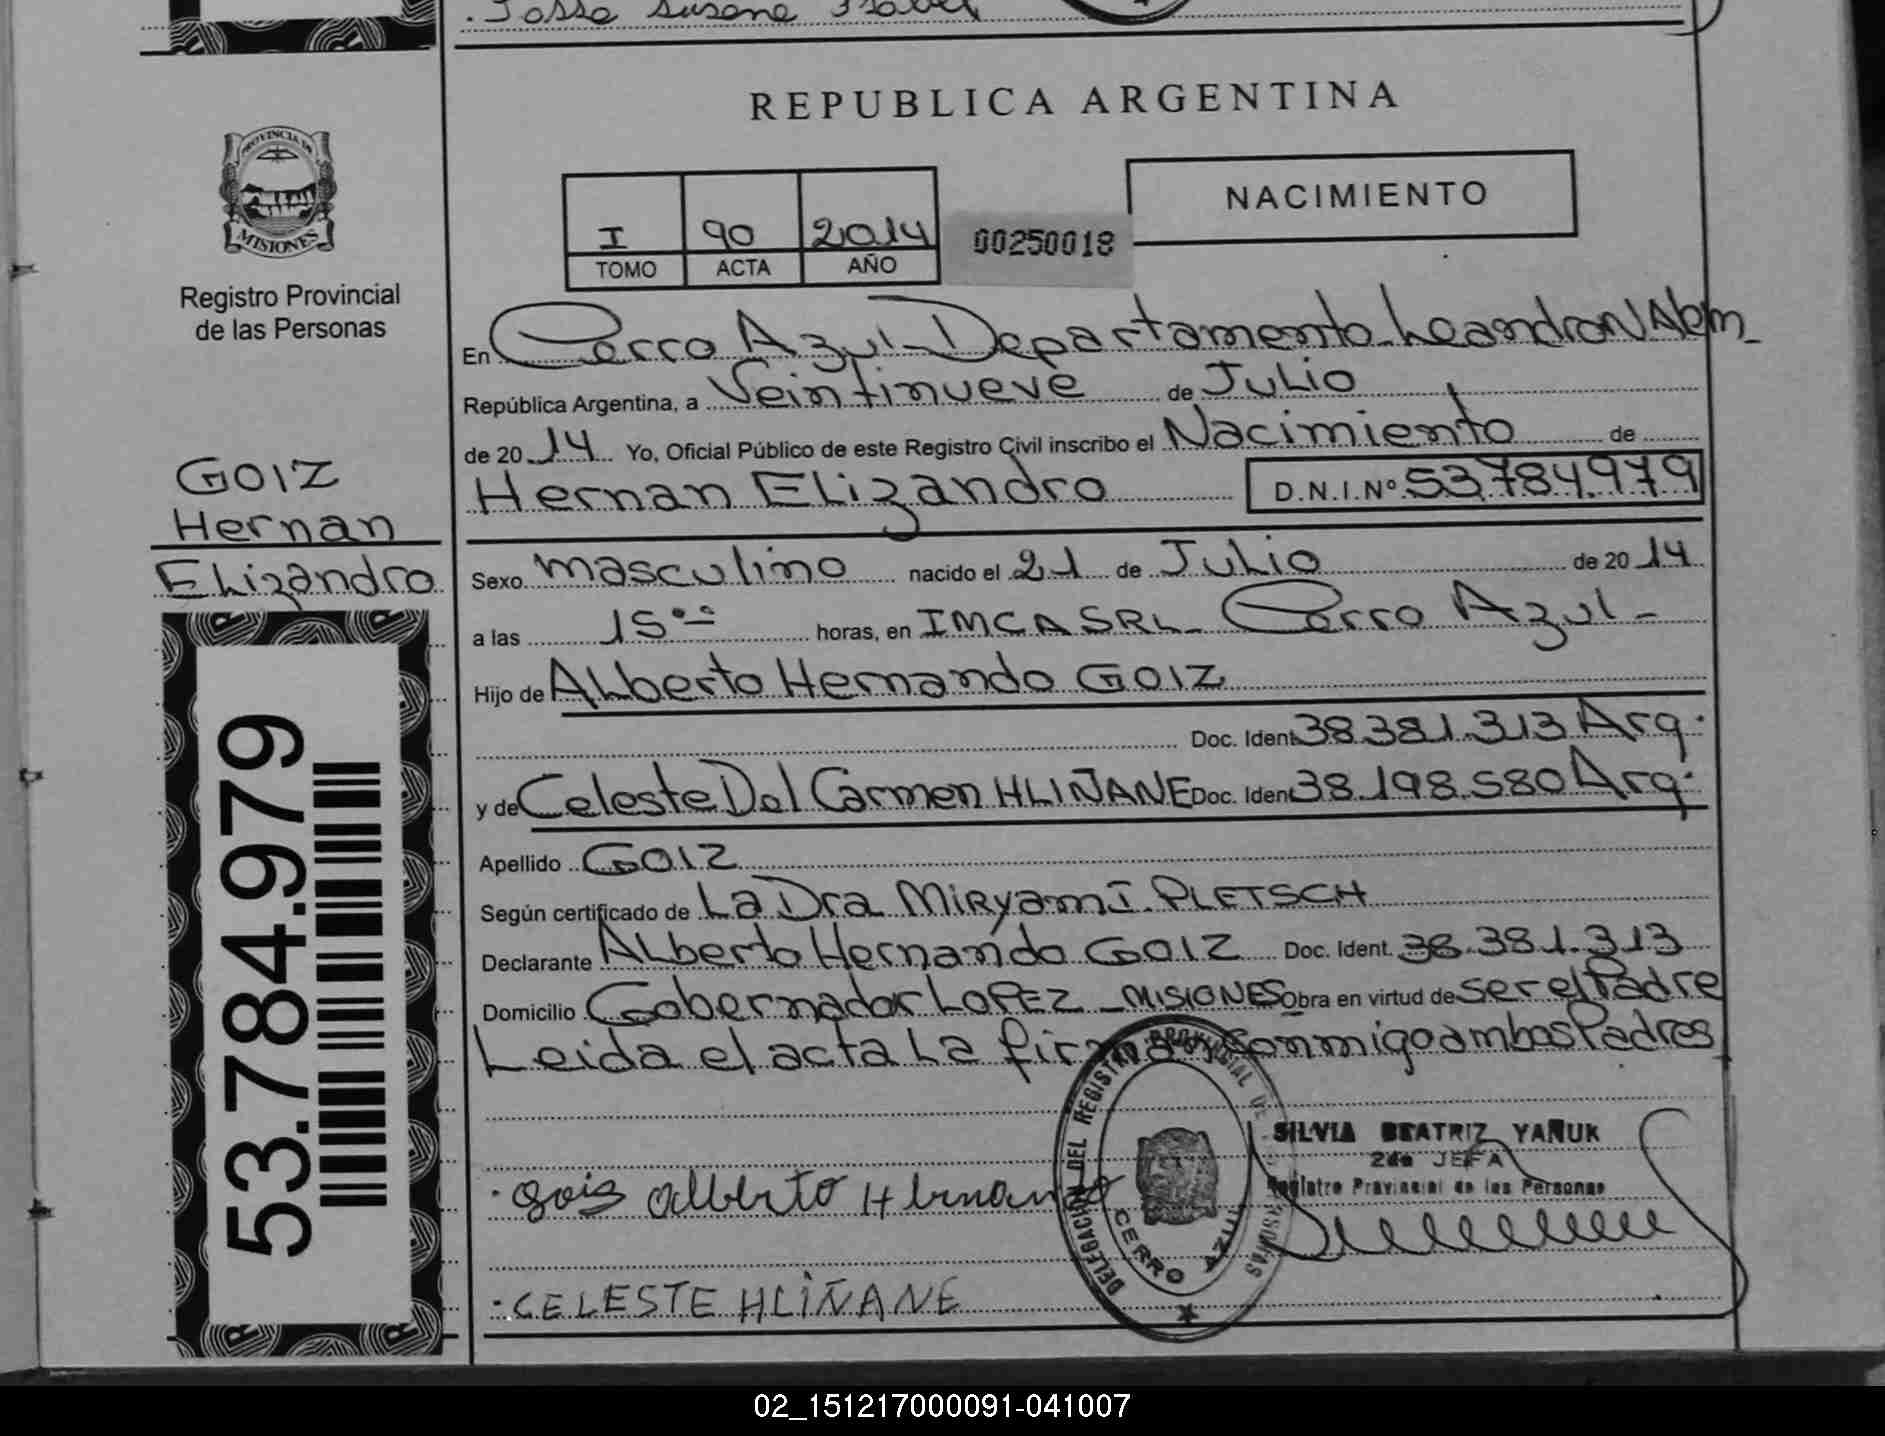 Josse Susana Isabel
REPUBLICA ARGENTINA
PROVINCIA DE
MISIONES
Registro Provincial
de las Personas
I 90 2014
TOMO ACTA AÑO
00250018
NACIMIENTO
En Cerro Azul - Departamento Leandro N Alem -
República Argentina, a Veintinueve de Julio
de 20 14 Yo, Oficial Público de este Registro Civil inscribo el Nacimiento de
Hernan Elizandro D.N.I.Nº 53.784.979
GOIZ
Hernan
Elizandro
Sexo masculino nacido el 21 de Julio de 20 14
a las 15⁰⁰ horas, en IMCA SRL - Cerro Azul -
Hijo de Alberto Hernando GOIZ
Doc. Ident 38.381.313 Arg.
y de Celeste Del Carmen HLIÑANE Doc. Iden 38.198.580 Arg.
Apellido GOIZ
Según certificado de La Dra Miryam I. PLETSCH
Declarante Alberto Hernando GOIZ Doc. Ident. 38.381.313
Domicilio Gobernador LOPEZ - MISIONES Obra en virtud de ser el Padre
Leida el acta la firman Conmigo ambos Padres
53.784.979
DELEGACIÓN DEL REGISTRO PROVINCIAL DE LAS PERSONAS
CERRO AZUL
SILVIA BEATRIZ YAÑUK
2da JEFA
Registro Provincial de las Personas
Goiz Alberto Hernando
CELESTE HLIÑANE
02_151217000091-041007